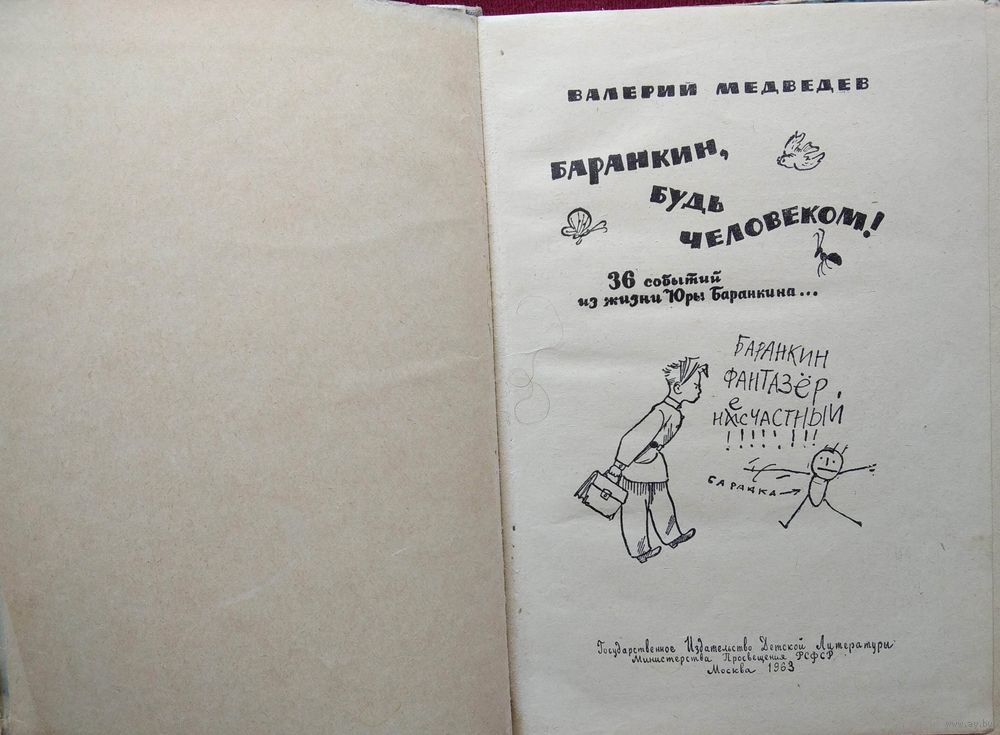 ВАЛЕРИЙ МЕДВЕДЕВ
БАРАНКИН,
БУДЬ
ЧЕЛОВЕКОМ!
36 событий
из жизни Юры Баранкина...
БАРАНКИН
ФАНТАЗЁР,
НЕСЧАСТНЫЙ
!!!!!.!!!
БАРАНКА
Государственное Издательство Детской Литературы
Министерства Просвещения РСФСР
Москва 1963
www.ay.by